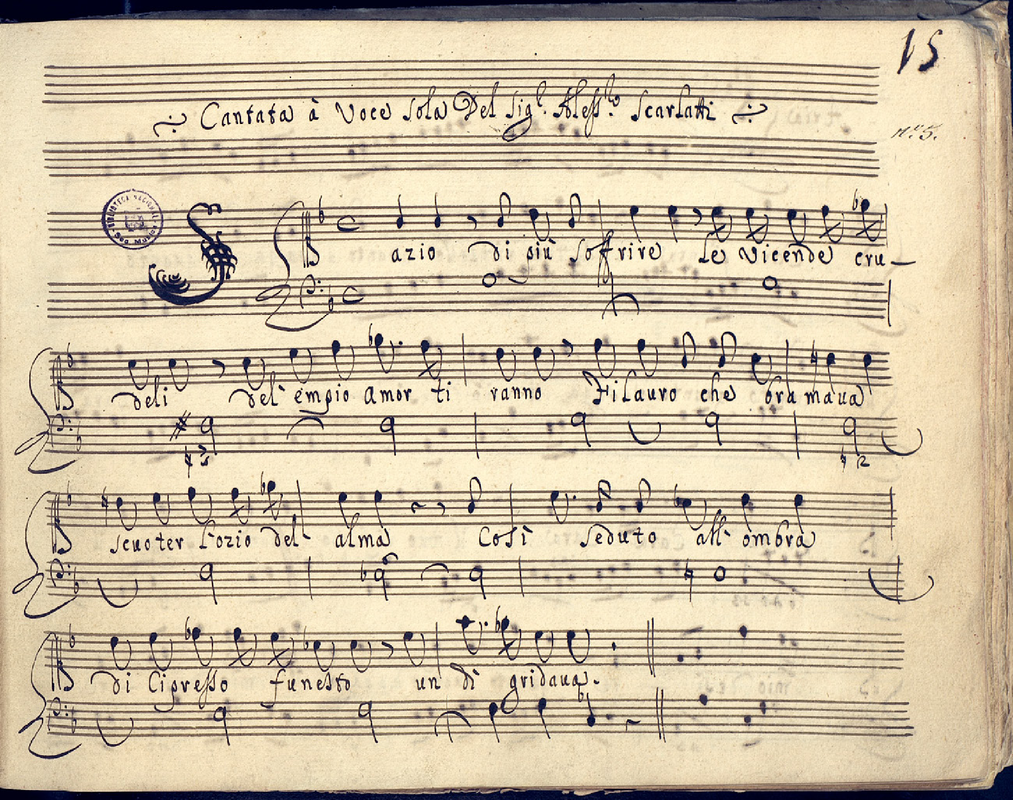 15
Cantata à Voce Sola Del Sigr. Alessro. Scarlatti
no. 5.
BIBLIOTECA NACIONAL
Sazio di più soffrire le vicende cru_
deli del' empio Amor ti ranno Filauro che ora maua
scuoter l'ozio del' alma Così seduto all' ombra
di Cipresso funesto un dì gridaua.